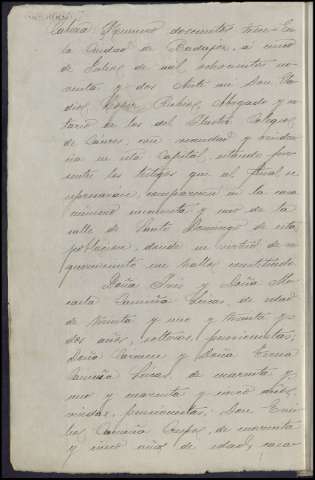 Número doscientos trece = En
la Ciudad de Badajoz, á cinco
de Julio de mil ochocientos no-
venta y dos. Ante mi Don
Abogado y no-
tario de los del Ilustre Colegio
de Cáceres, con vecindad y residen-
cia en esta Capital, estando pre-
sentes los testigos que al final se
expresarán, comparecen en la casa
número cincuenta y uno de la
calle de Santo Domingo de esta
población, donde en virtud de re-
querimiento me hallo constituido
Doña Inés y Doña Ma-
Carmiña Lucas, de edad
de treinta y uno y treinta y
dos años, solteras, pensionistas;
Doña Carmen y Doña
Carmiña Lucas, de cuarenta y
uno y cuarenta y cinco años,
viudas, pensionistas; Don Emi-
lio Carmiña Crespo, de cuarenta
y cinco años de edad, casa-